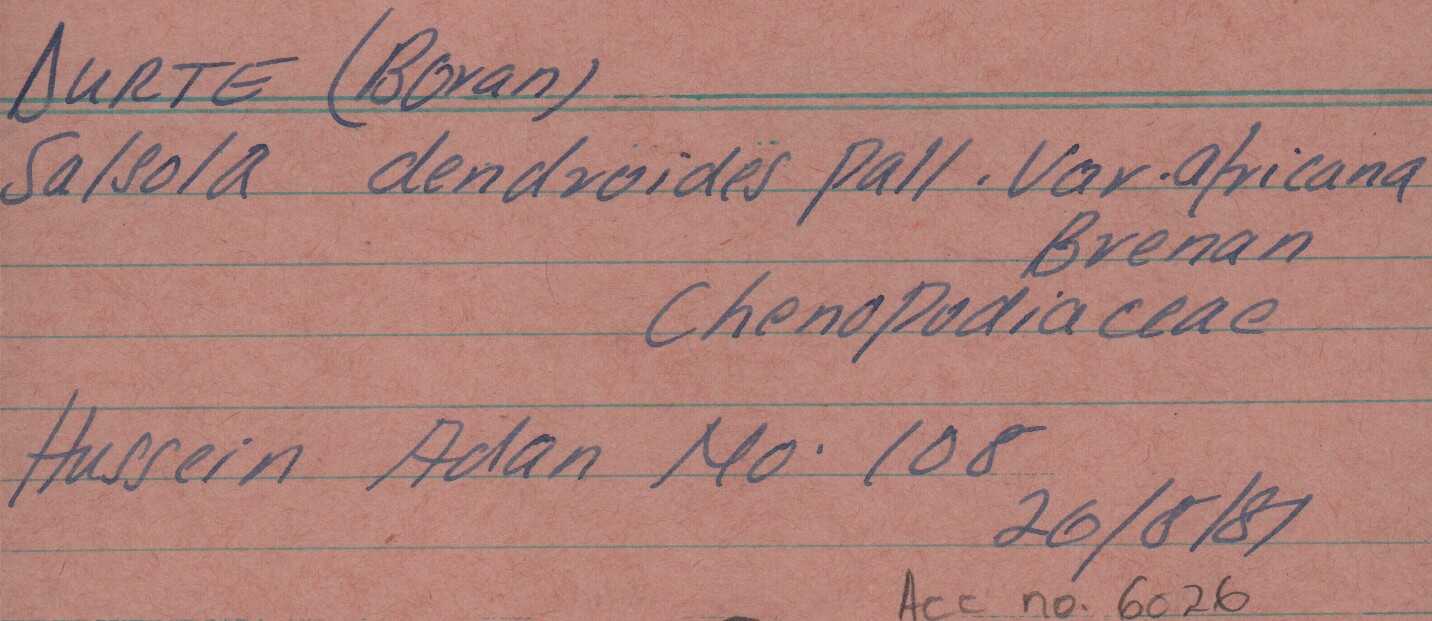 DURTE (Boran)
Salsola dendroidës Pall. Var. africana
Brenan
Chenopodiaceae
Hussein Adan No. 108
20/8/87
Acc no. 6026